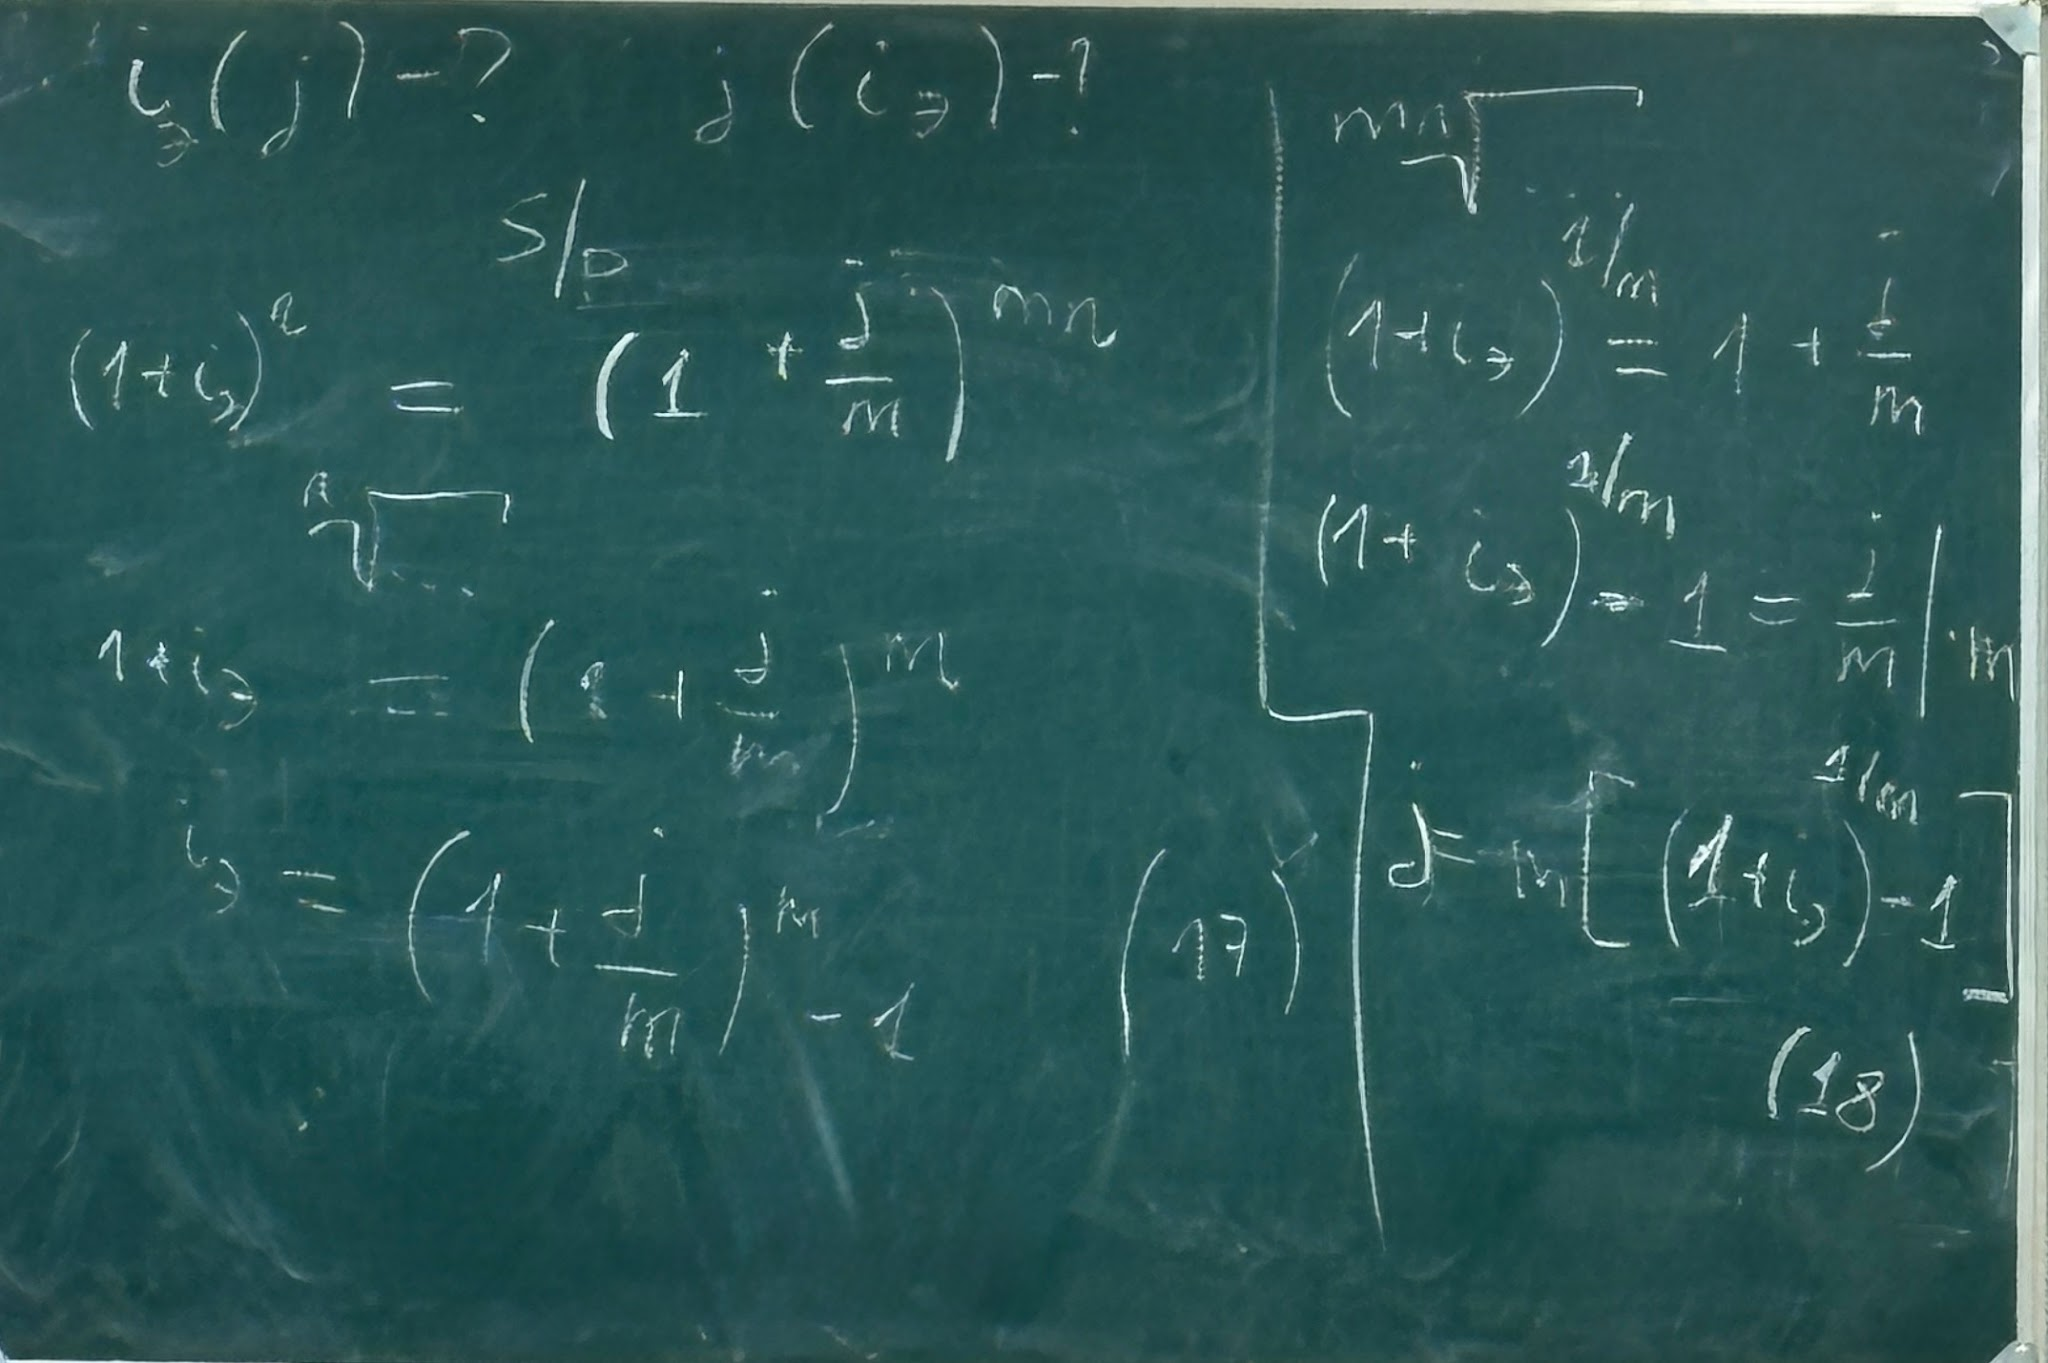 i_э(j) - ? j(i_э) - ?
S/P
(1+i_э)^n = (1 + j/m)^{mn}
\sqrt[n]{...}
1+i_э = (1 + j/m)^m
i_э = (1 + j/m)^m - 1 (17)
\sqrt[mn]{}
(1+i_э)^{1/m} = 1 + j/m
(1+i_э)^{1/m} - 1 = j/m | · m
j = m[(1+i_э)^{1/m} - 1]
(18)